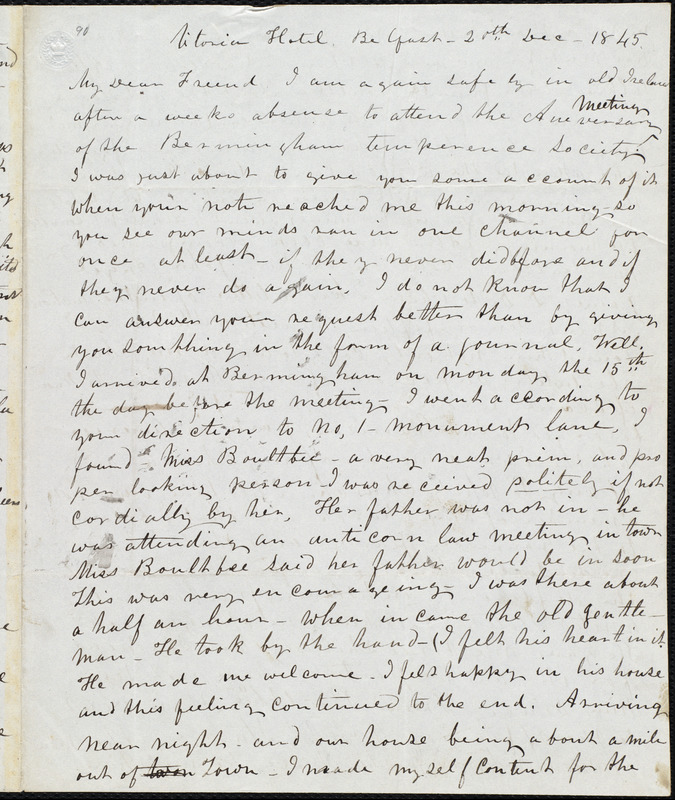 90
Vitoria Hotel. Belfast - 20th Dec - 1845.
My Dear Freend. I am again safely in old Ireland
after a weeks absense to attend the Aneversary Meeting
of the Bermingham temperence Society.
I was just about to give you some account of it
when your note reached me this morning - so
you see our minds ran in one channel for
once at least - if they never did before and if
they never do again. I do not know that I
can answer your request better than by giving
you somthing in the form of a journal. Well.
I arrived at Bermingham on monday the 15th
the day before the meeting - I went according to
your direction to No, 1 - monument lane, I
found Miss Boultbee - a very neat, prim, and pro
per looking person - I was received politely if not
cordially by her, Her father was not in - he
was attending an anticorn law meeting in town
Miss Boultbee said her father would be in soon
This was very encourageing - I was there about
a half an hour - when in came the old gentle-
man - He took by the hand - (I felt his heart in it.
He made me welcome - I felt happy in his house
and this feeling continued to the end. Arriving
near night - and our house being about a mile
out of town Town - I made myself content for the